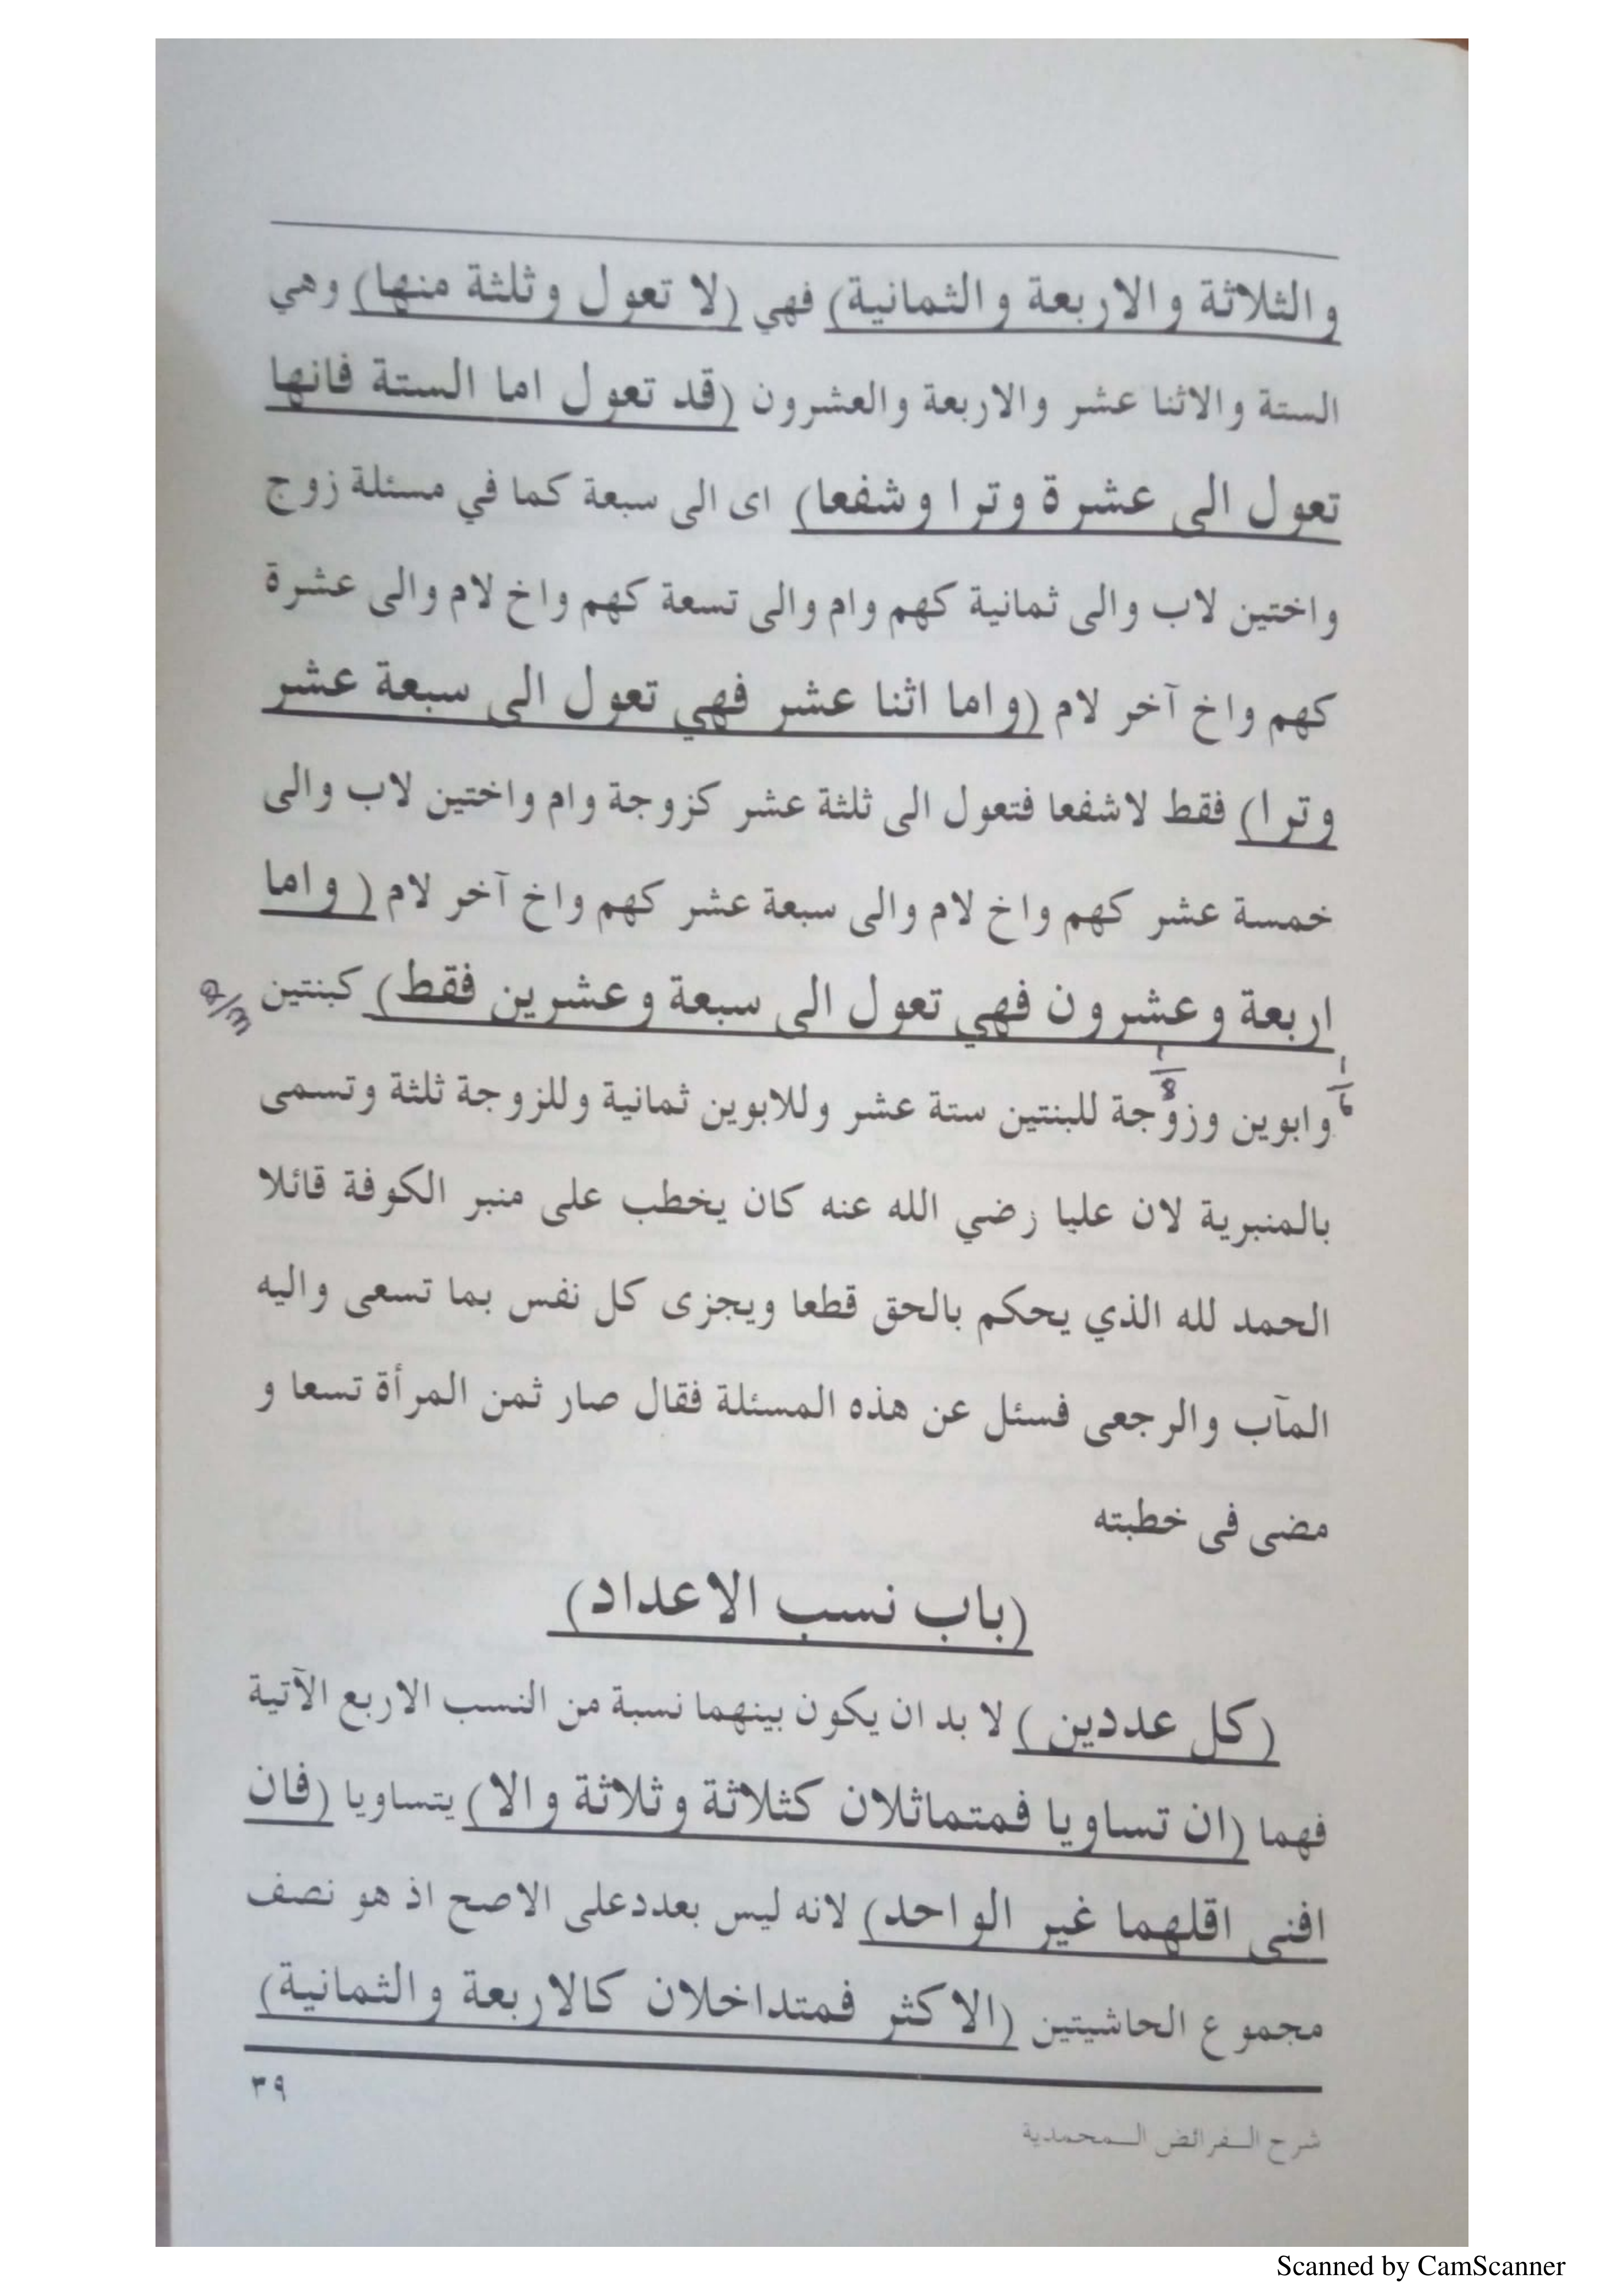 والثلاثة والاربعة والثمانية) فهي (لا تعول وثلثة منها) وهي
الستة والاثنا عشر والاربعة والعشرون (قد تعول اما الستة فانها
تعول الى عشرة وترا وشفعا) اى الى سبعة كما في مسئلة زوج
واختين لاب والى ثمانية كهم وام والى تسعة كهم واخ لام والى عشرة
كهم واخ آخر لام (واما اثنا عشر فهي تعول الى سبعة عشر
وترا) فقط لاشفعا فتعول الى ثلثة عشر كزوجة وام واختين لاب والى
خمسة عشر كهم واخ لام والى سبعة عشر كهم واخ آخر لام ( واما
اربعة وعشرون فهي تعول الى سبعة وعشرين فقط) كبنتين
2/3
1/8
1/6
وابوين وزوجة للبنتين ستة عشر وللابوين ثمانية وللزوجة ثلثة وتسمى
بالمنبرية لان عليا رضي الله عنه كان يخطب على منبر الكوفة قائلا
الحمد لله الذي يحكم بالحق قطعا ويجزى كل نفس بما تسعى واليه
المآب والرجعى فسئل عن هذه المسئلة فقال صار ثمن المرأة تسعا و
مضى فى خطبته
(باب نسب الاعداد)
(كل عددين ) لا بد ان يكون بينهما نسبة من النسب الاربع الآتية
فهما (ان تساويا فمتماثلان كثلاثة وثلاثة والا) يتساويا (فان
افنى اقلهما غير الواحد) لانه ليس بعدد على الاصح اذ هو نصف
مجموع الحاشيتين (الاكثر فمتداخلان كالاربعة والثمانية)
٣٩
شرح الـفرائض الـمحمدية
Scanned by CamScanner